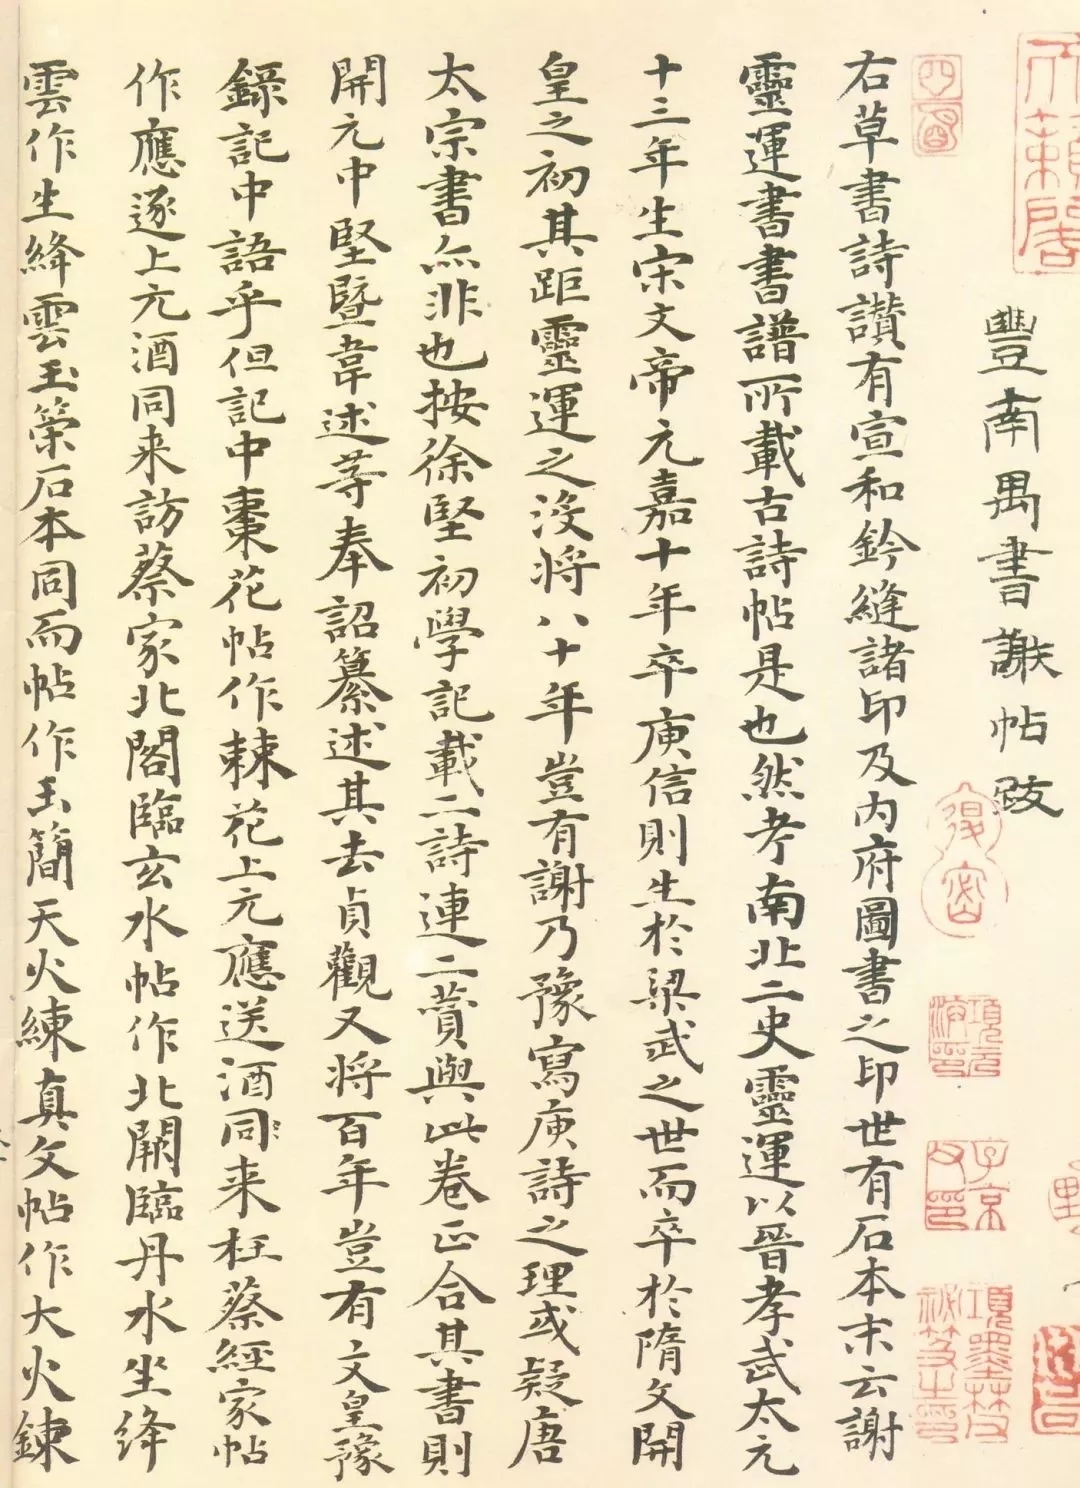 天籟閣
豐南禺書謝帖跋
右草書詩讃有宣和鈐縫諸印及内府圖書之印世有石本末云謝
靈運書書譜所載古詩帖是也然考南北二史靈運以晉孝武太元
十三年生宋文帝元嘉十年卒庾信則生於梁武之世而卒於隋文開
皇之初其距靈運之没将八十年豈有謝乃豫寫庾詩之理或疑唐
太宗書亦非也按徐堅初學記載二詩連二賛與此卷正合其書則
開元中堅暨韋述等奉詔纂述其去貞觀又将百年豈有文皇豫
錄記中語乎但記中棗花帖作棘花上元應送酒同来枉蔡經家帖
作應逐上元酒同来訪蔡家北閣臨玄水帖作北闕臨丹水坐絳
雲作生絳雲玉策石本同而帖作玉簡天火練真文帖作大火鍊
項元汴印
子京父印
項墨林秘笈之印